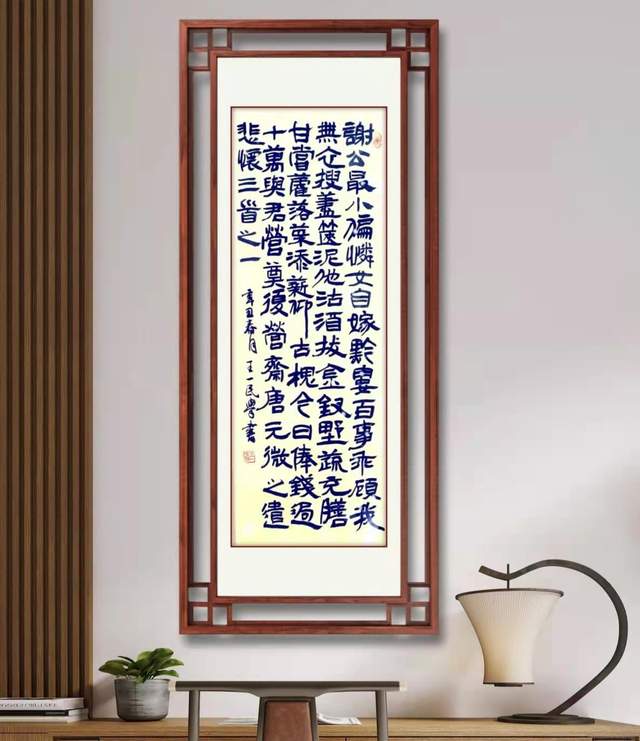 謝公最小偏憐女自嫁黔婁百事乖顧我
無衣搜藎篋泥他沽酒拔金釵野蔬充膳
甘嘗藿落葉添薪仰古槐今日俸錢過
十萬與君營奠復營齋唐元微之遣
悲懷三首之一
辛丑春月王一民學書